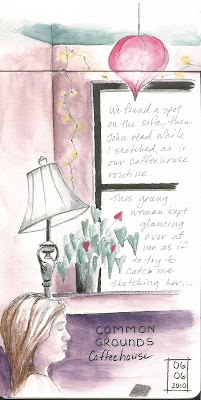 We found a spot
on the sofa, then
John read while
I sketched, as is
our coffeehouse
routine.
This young
woman kept
glancing
over at
me as if
to try to
catch me
sketching her...
COMMON
GROUNDS
Coffeehouse
06
06
2010